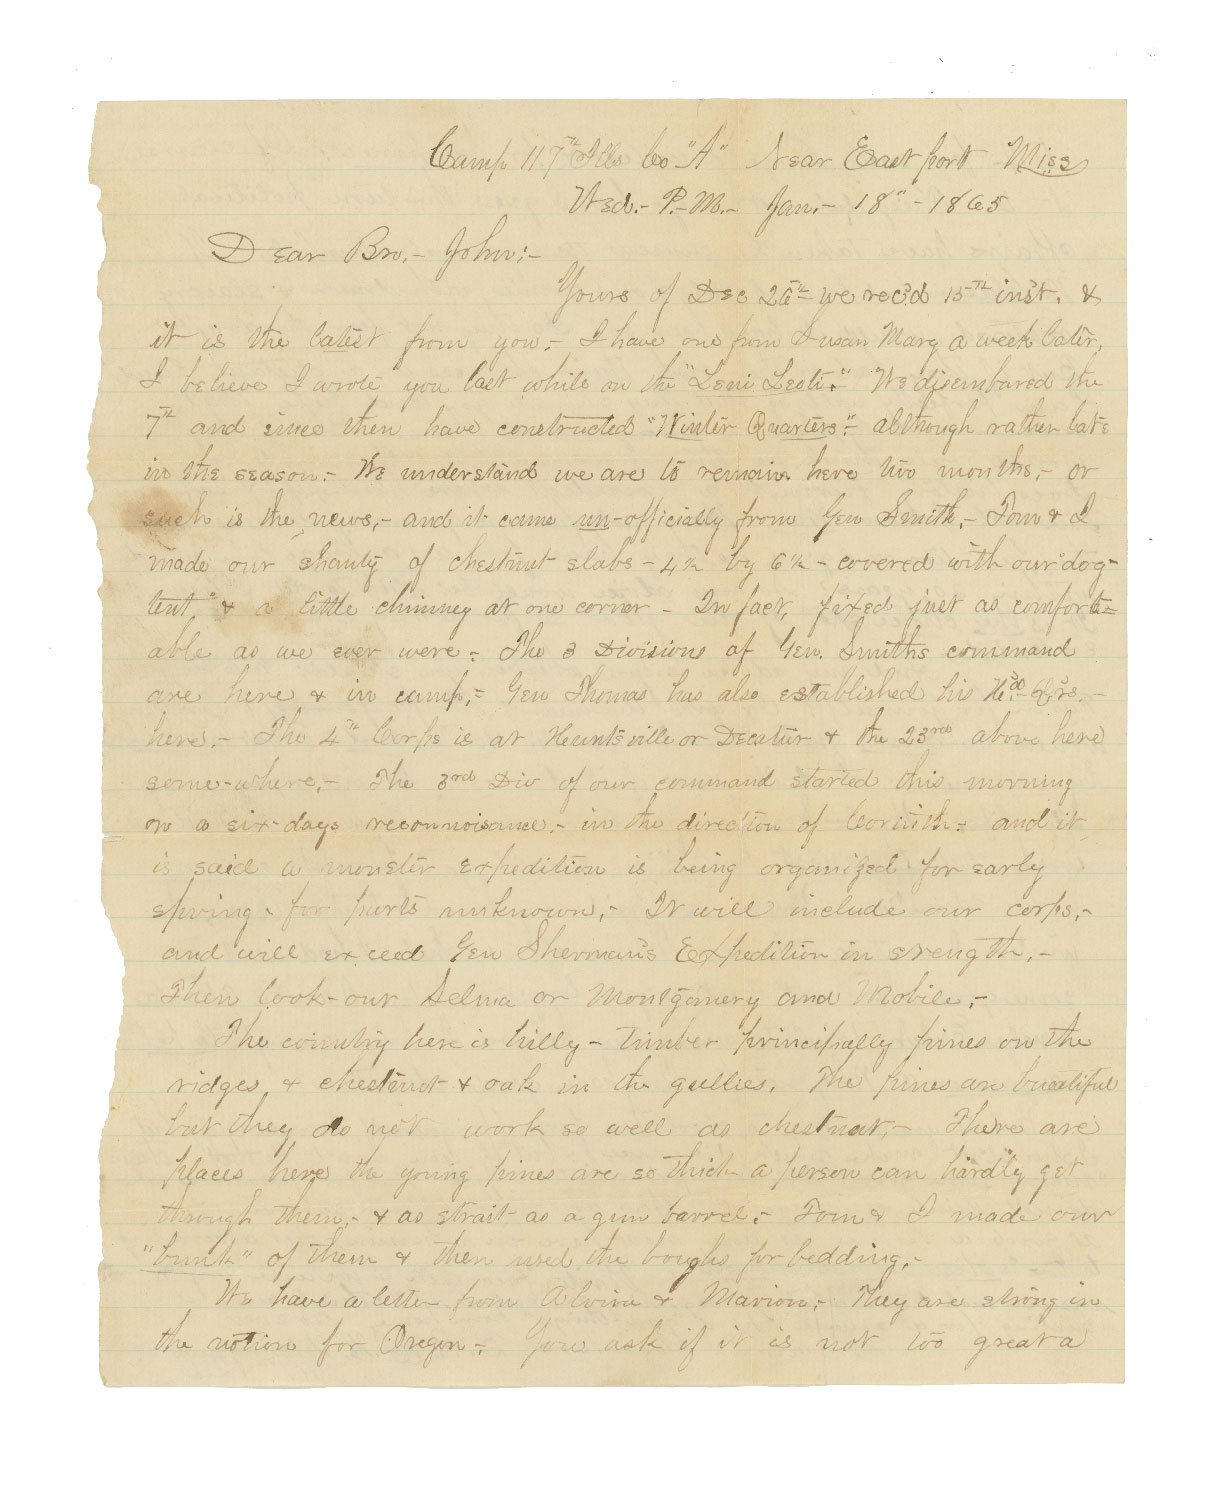 Camp 117th Ills Co "A" Near Eastport Miss
Wed.- P.-M.- Jan.- 18" - 1865
Dear Bro.- John:-
Yours of Dec 26th we rec'd 15th inst. &
it is the latest from you.- I have one from Susan Mary a week later,
I believe I wrote you last while on the "Leni Leoti." We disembared the
7th and since then have constructed "Winter Quarters": although rather late
in the season.- We understand we are to remain here two months,- or
such is the news,- and it came un-officially from Gen Smith,- Tom & I
made our shanty of chestnut slabs - 4½ by 6½ - covered with our "dog-
tent," & a little chimney at one corner - In fact, fixed just as comfort=
able as we ever were - The 3 Divisions of Gen. Smiths command
are here & in camp,- Gen Thomas has also established his Hd.- Qrs.-
here.- The 4th Corps is at Huntsville or Decatur & the 23rd above here
some-where,- The 3rd Div of our command started this morning
on a six-days reconnoisance.- in the direction of Corinth- and it
is said a monster expedition is being organized for early
spring - for parts unknown,- It will include our corps,-
and will exceed Gen Sherman's Expedition in strength,-
Then look-out Selma or Montgomery and Mobile,-
The country here is hilly - timber principally pines on the
ridges, & chestnut & oak in the gullies. The pines are buatiful
but they do not work so well as chestnut,- There are
places here the young pines are so thick a person can hardly get
through them,- & as strait as a gun barrel.- Tom & I made our
"bunk" of them & then used the boughs for bedding,-
We have a letter from & Marion,- They are strong in
the notion for Oregon - You ask if it is not too great a